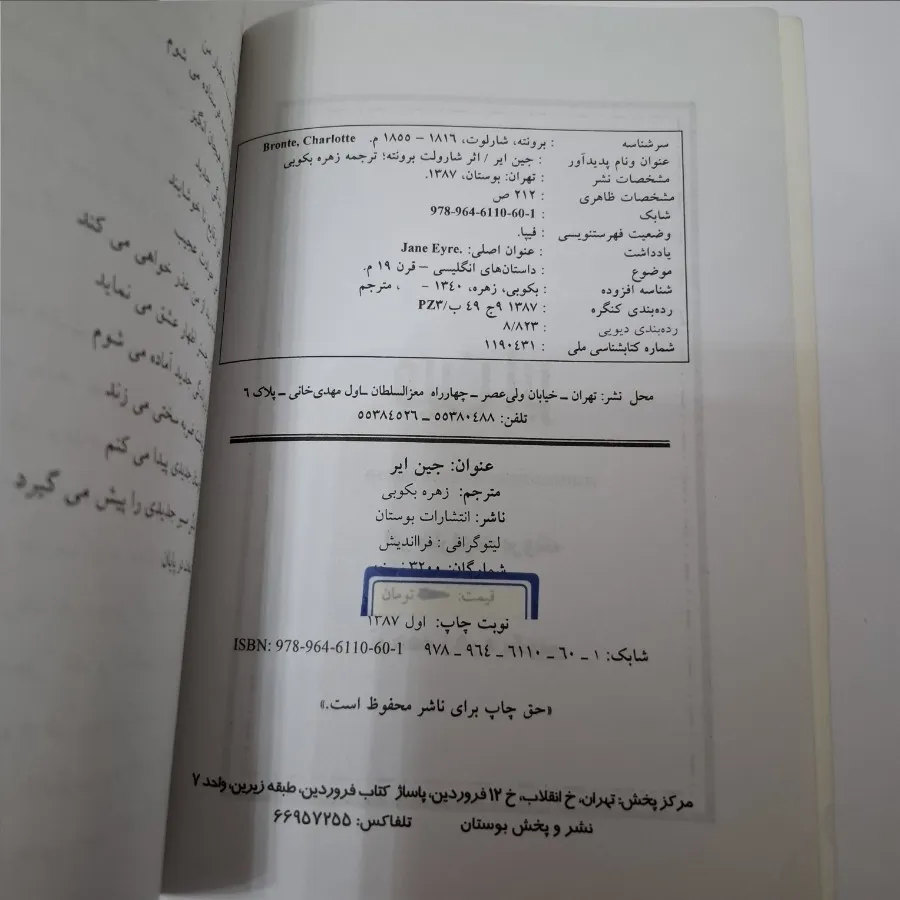 سرشناسه : برونته، شارلوت، ۱۸۱۶ – ۱۸۵۵ م. Bronte, Charlotte
عنوان ونام پدیدآور : جین ایر / اثر شارولت برونته؛ ترجمه زهره بکوبی
مشخصات نشر : تهران: بوستان، ۱۳۸۷.
مشخصات ظاهری : ۲۱۲ ص
شابک : 978-964-6110-60-1
وضعیت فهرستنویسی : فیپا.
یادداشت : عنوان اصلی: Jane Eyre.
موضوع : داستان‌های انگلیسی – قرن ۱۹ م.
شناسه افزوده : بکوبی، زهره، ۱۳۴۰ - ، مترجم
رده‌بندی کنگره : ۱۳۸۷ ۹ج ۴۹ ب/PZ۳
رده‌بندی دیویی : ۸/۸۲۳
شماره کتابشناسی ملی : ۱۱۹۰۴۳۱
محل نشر: تهران ـ خیابان ولی‌عصر ـ چهارراه معزالسلطان ـاول مهدی‌خانی ـ پلاک ۶
تلفن: ۵۵۳۸۰۴۸۸ ـ ۵۵۳۸۴۵۲۶
عنوان: جین ایر
مترجم: زهره بکوبی
ناشر: انتشارات بوستان
لیتوگرافی : فرااندیش
شمارگان: ۳۲۰۰
قیمت: تومان
نوبت چاپ: اول ۱۳۸۷
شابک: ۱ ـ ۶۰ ـ ۶۱۱۰ ـ ۹۶۴ ـ ۹۷۸ ISBN: 978-964-6110-60-1
«حق چاپ برای ناشر محفوظ است.»
مرکز پخش: تهران، خ انقلاب، خ ۱۲ فروردین، پاساژ کتاب فروردین، طبقه زیرین، واحد ۷
نشر و پخش بوستان تلفاکس: ۶۶۹۵۷۲۵۵
می شوم
عذر خواهی می کند
اظهار عشق می نماید
جدید آماده می شوم
ضربه سختی می زند
جدیدی پیدا می کنم
جدیدی را پیش می گیرد